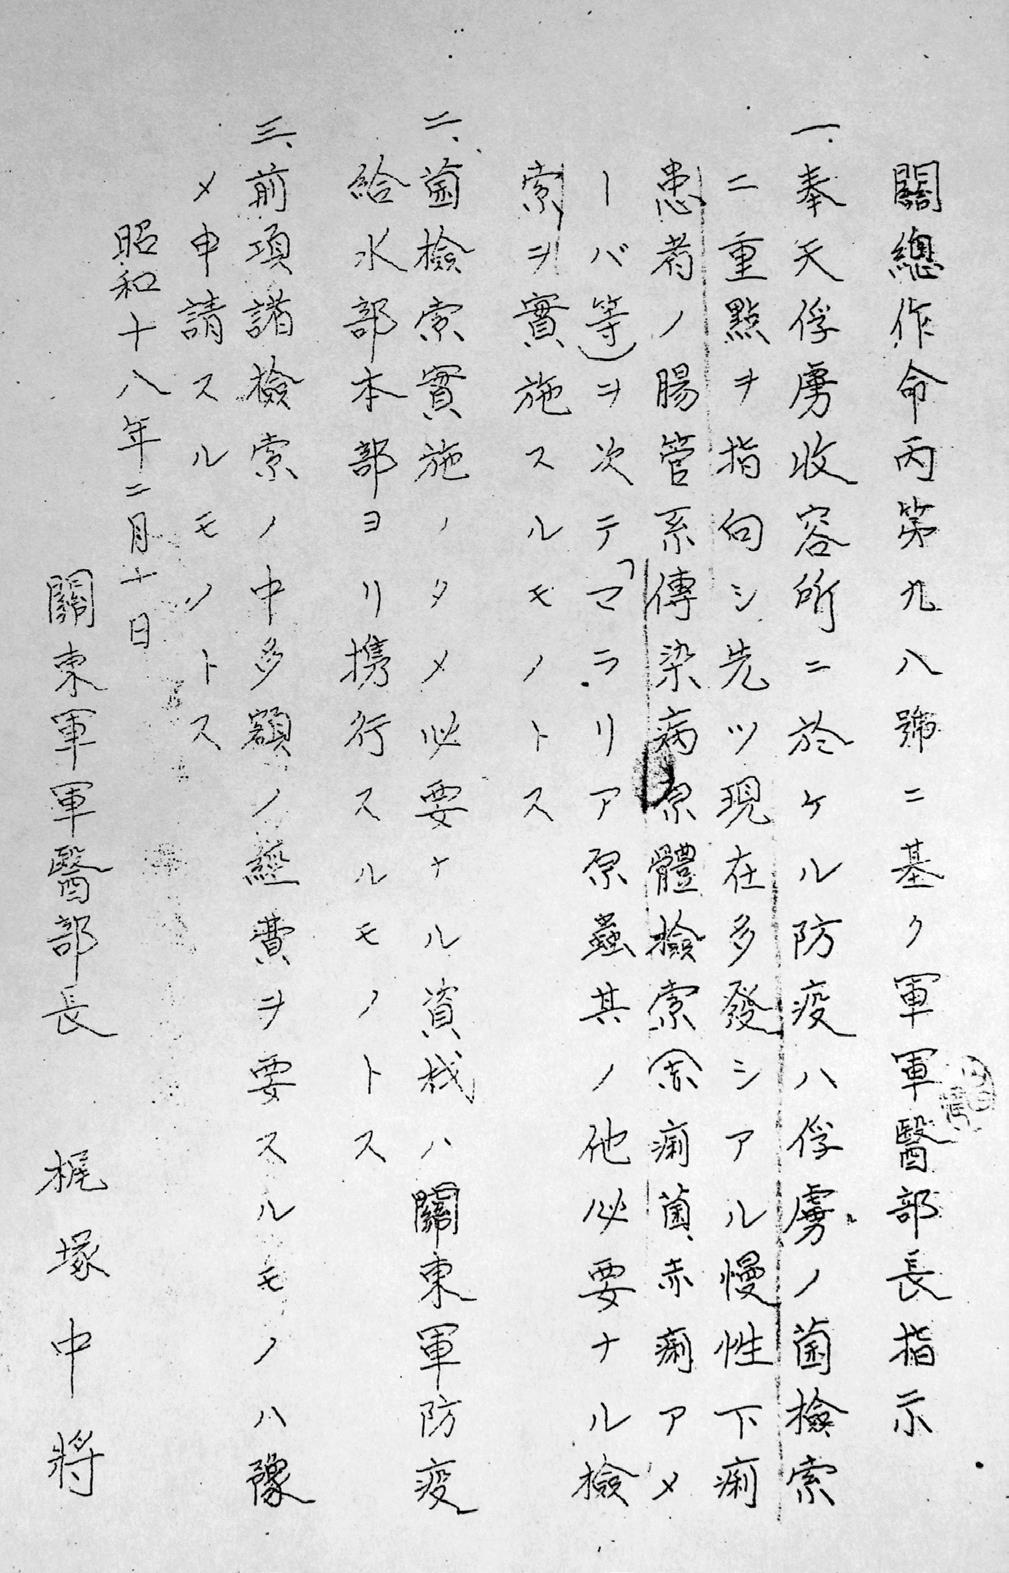 關總作命丙第九八號ニ基ク軍軍醫部長指示
一、奉天俘虜收容所ニ於ケル防疫ハ俘虜ノ菌檢索
ニ重點ヲ指向シ先ツ現在多發シアル慢性下痢
患者ノ腸管系傳染病原體檢索(赤痢菌、赤痢アメ
ーバ等)ヲ次テ「マラリア原蟲其ノ他必要ナル檢
索ヲ實施スルモノトス
二、菌檢索實施ノタメ必要ナル資材ハ關東軍防疫
給水部本部ヨリ携行スルモノトス
三、前項諸檢索ノ中多額ノ經費ヲ要スルモノハ豫
メ申請スルモノトス
昭和十八年二月十日
關東軍軍醫部長 梶塚中將